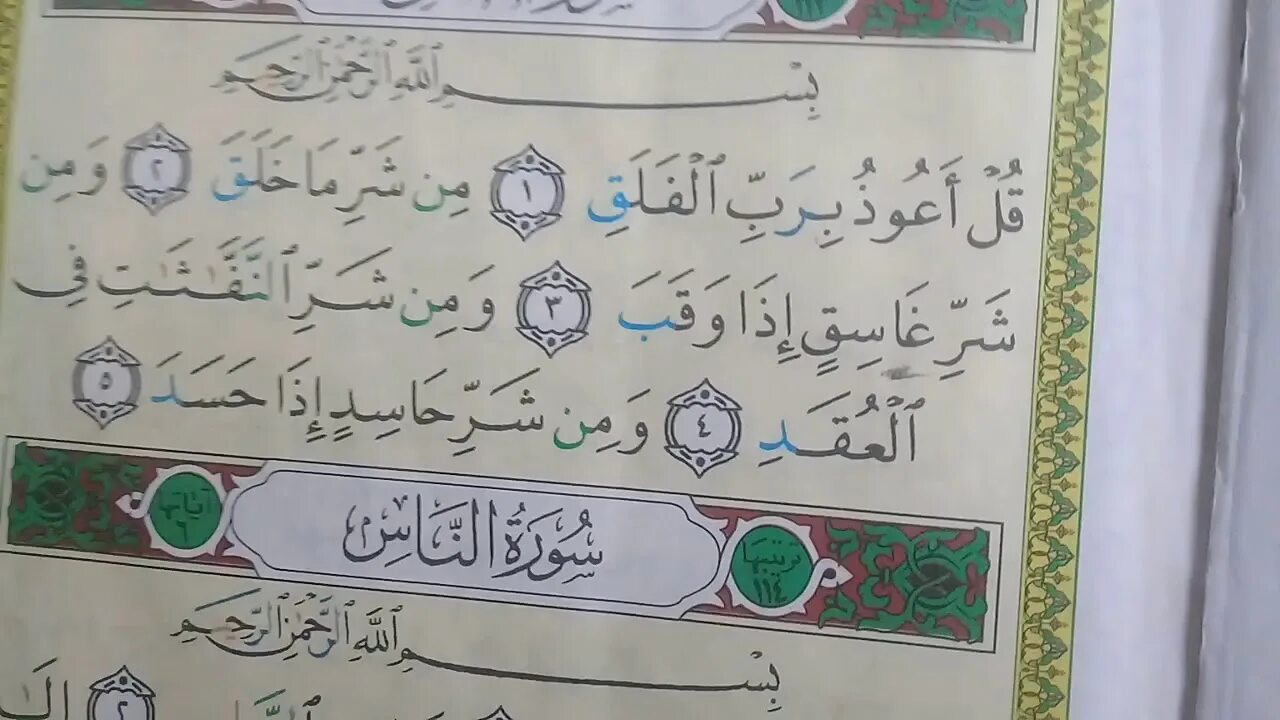 ١١٣
بِسْمِ اللَّهِ الرَّحْمَٰنِ الرَّحِيمِ
قُلْ أَعُوذُ بِرَبِّ ٱلْفَلَقِ ١ مِن شَرِّ مَا خَلَقَ ٢ وَمِن
شَرِّ غَاسِقٍ إِذَا وَقَبَ ٣ وَمِن شَرِّ ٱلنَّفَّٰثَٰتِ فِى
ٱلْعُقَدِ ٤ وَمِن شَرِّ حَاسِدٍ إِذَا حَسَدَ ٥
ترتيبها ١١٤ سُورَةُ النَّاسِ آياتها ٦
بِسْمِ اللَّهِ الرَّحْمَٰنِ الرَّحِيمِ
٢